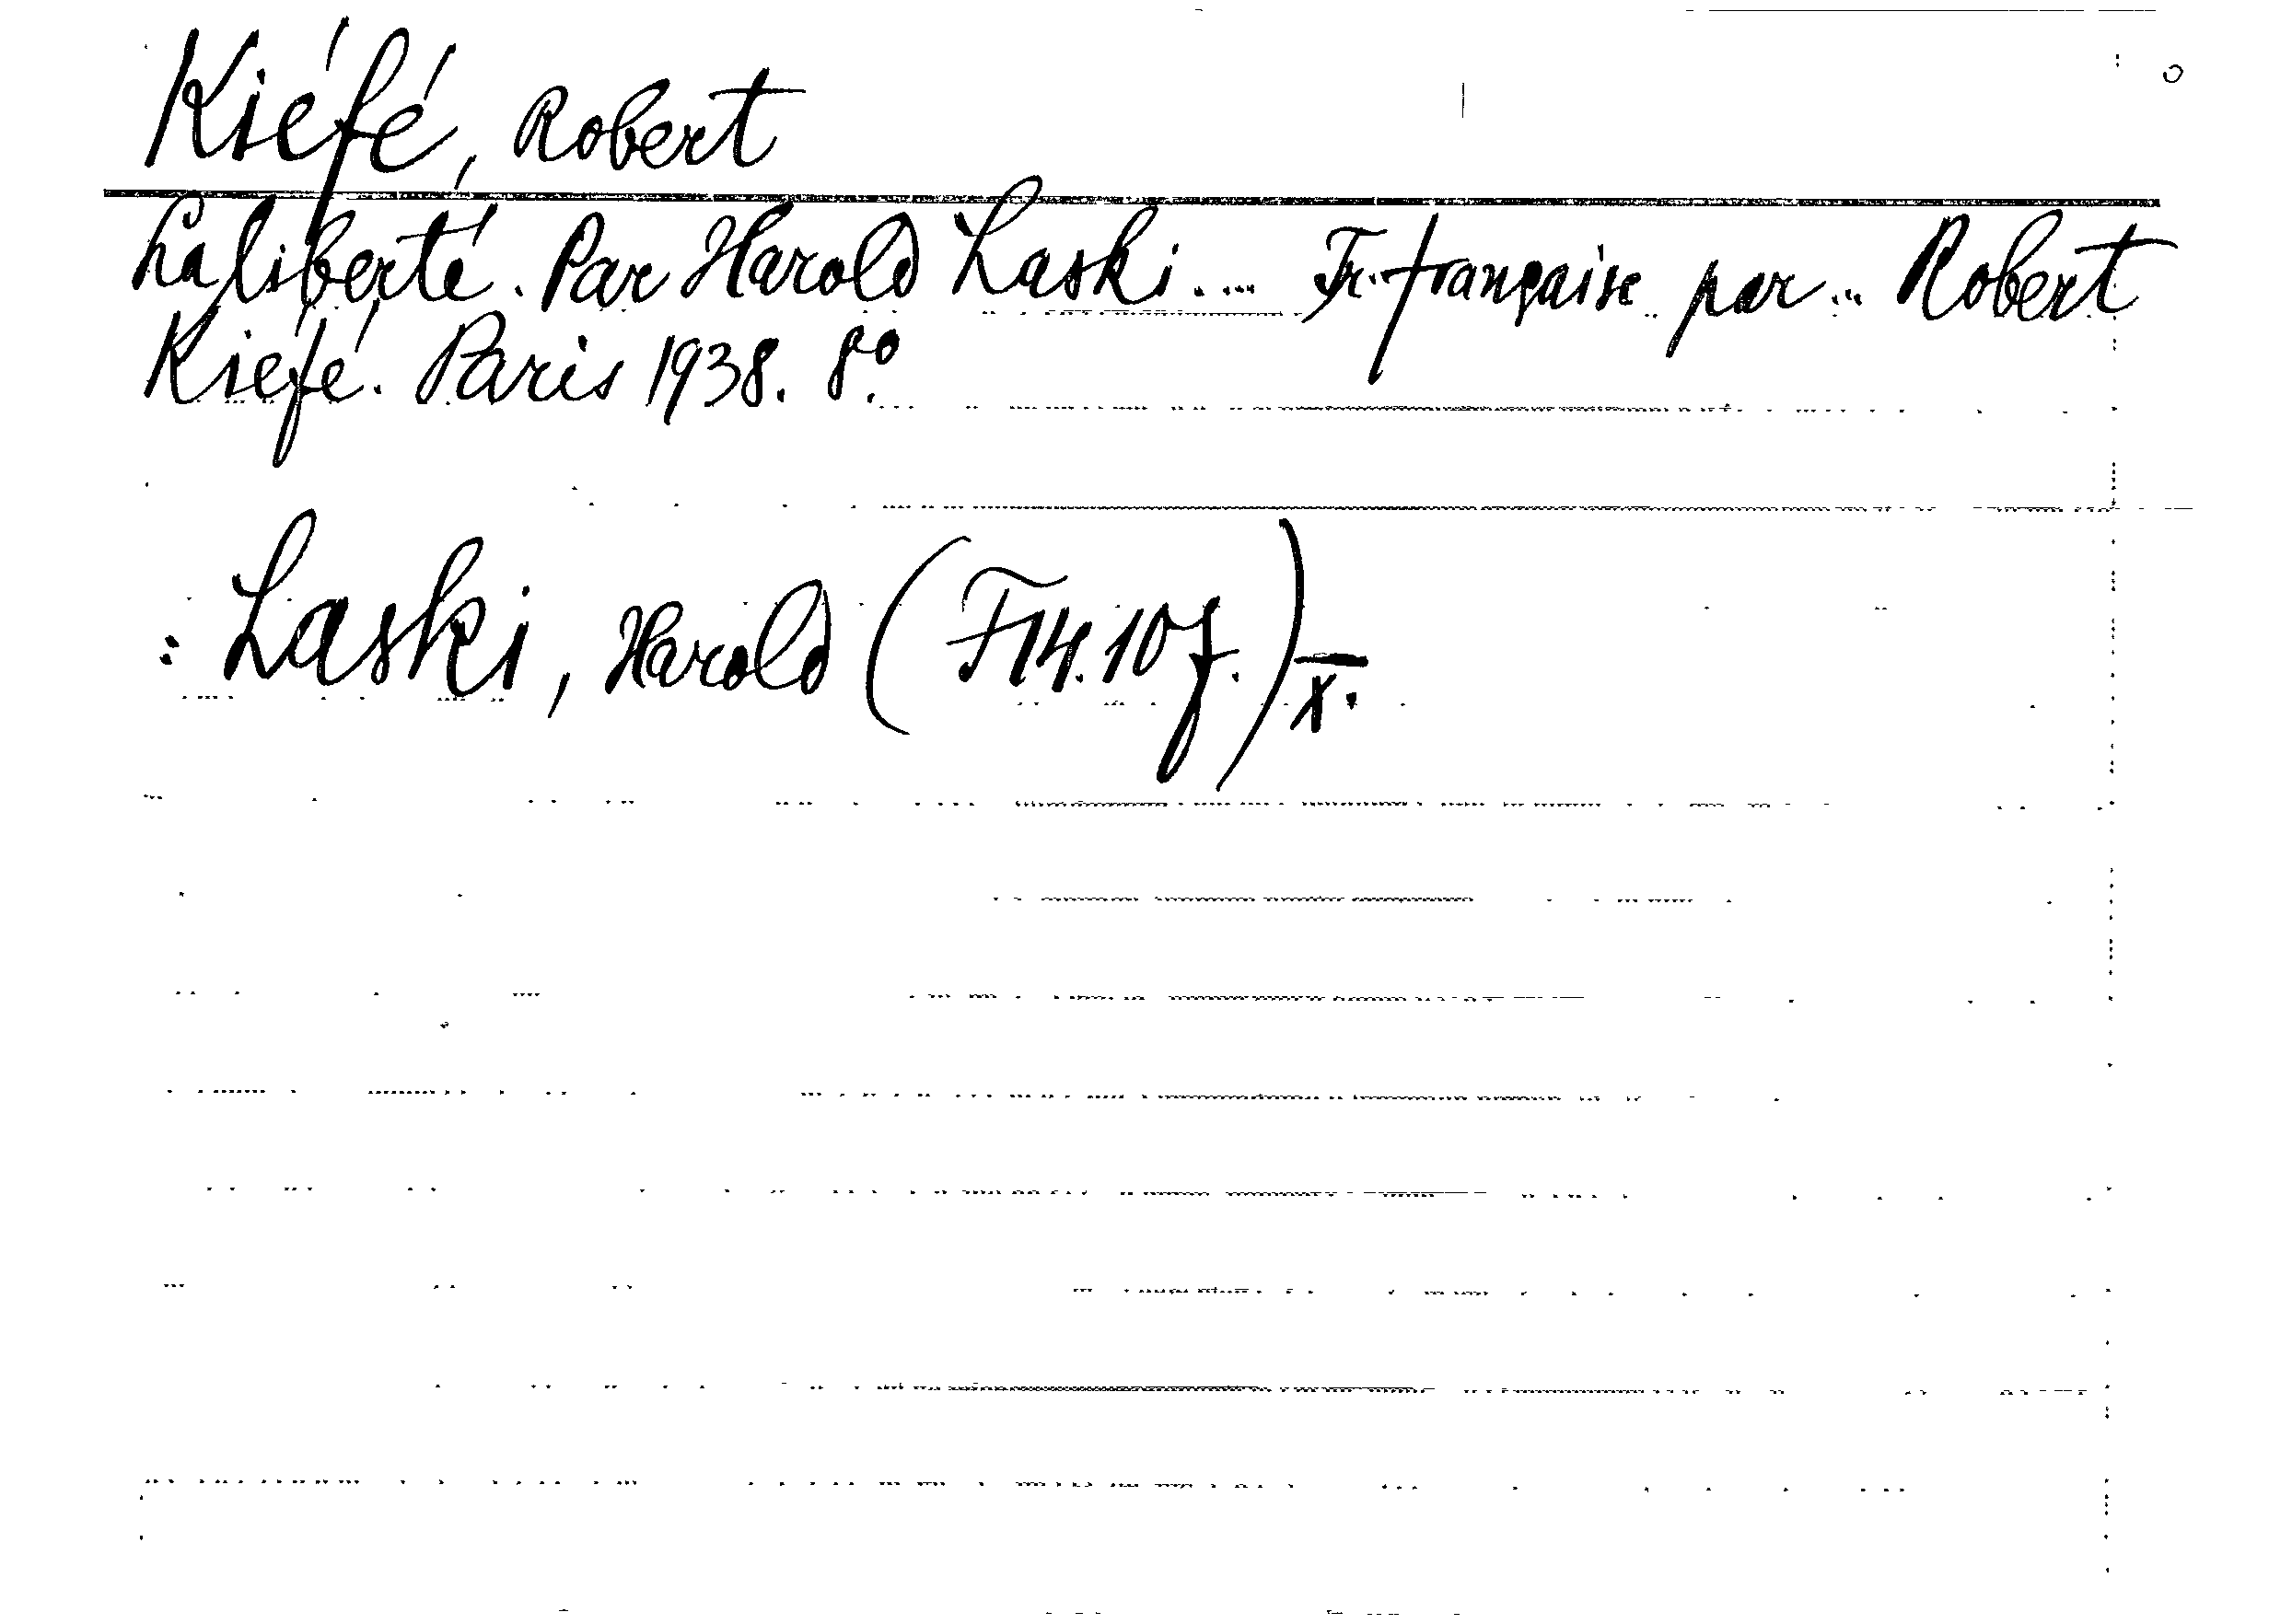 Kiéfé, Robert
La liberté. Par Harold Laski.... Tr. française par... Robert
Kiéfé. Paris 1938. 8°.
: Laski, Harold (F14.107.)
X.